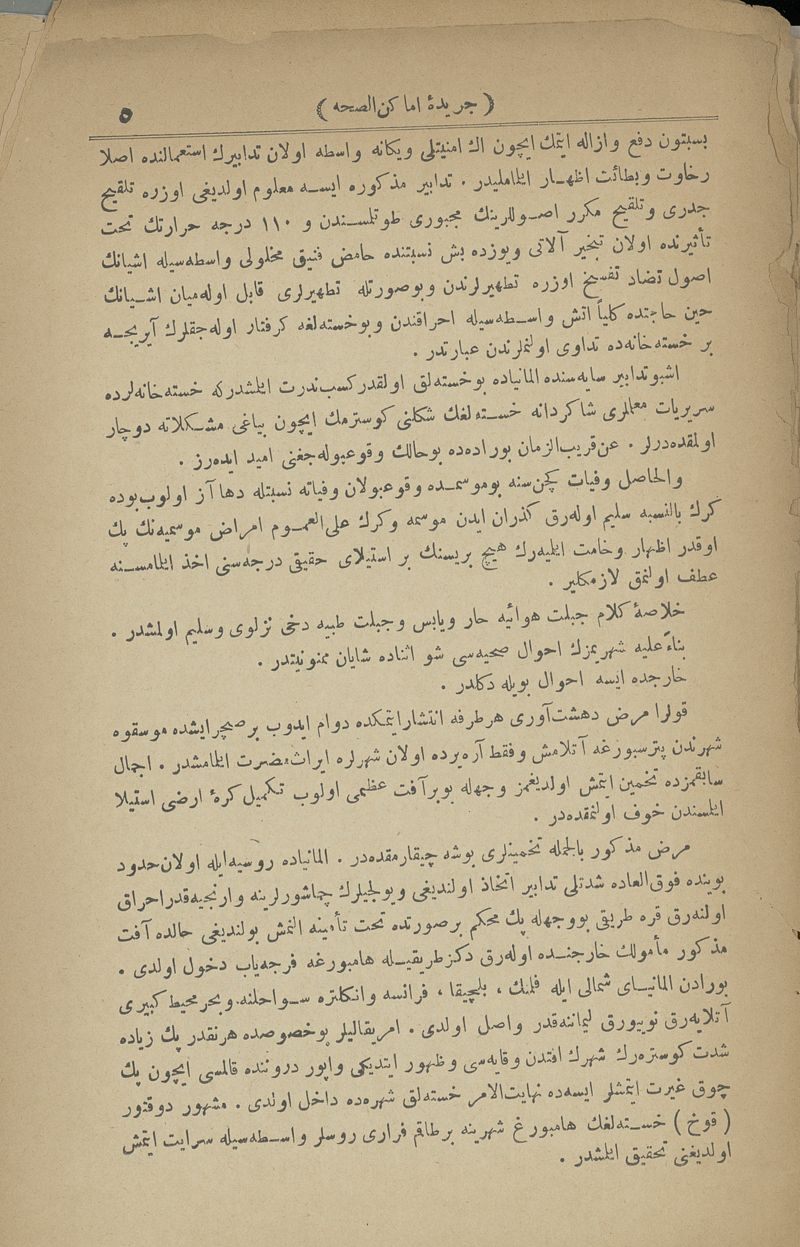 ( جریدهٔ اماکن‌الصحه ) ٥
بسبتون دفع و ازاله ایتمك ایچون اك امنیتلی ویكانه واسطه اولان تدابیرك استعمالنده اصلا
رخاوت و بطائت اظهار ایلماملیدر . تدابیر مذکوره ایسه معلوم اولدیغی اوزره تلقیح
جدری و تلقیح مکرر اصوللرینك مجبوری طوتلسندن و ١١٠ درجه حرارتك تحت
تأثیرنده اولان تبخیر آلاتی ویوزده بش نسبتنده حامض فنیق محلولی واسطه‌سیله اشیانك
اصول تضاد تفسخ اوزره تطهیرلرندن وبوصورتله تطهیرلری قابل اوله‌میان اشیانك
حین حاجتده کلیاً آتش واسطه‌سیله احراقندن وبوخسته‌لغه کرفتار اوله‌جقلرك آیریجه
بر خسته خانه‌ده تداوی اولنملرندن عبارتدر .
اشبوتدابیر سایه‌سنده المانیاده بوخسته‌لق اولقدرکسب‌ندرت ایلشدرکه خسته‌خانه‌لرده
سریریات معلملری شاکردانه خسته‌لغك شکلنی کوسترمك ایچون بیاغی مشکلاته دوچار
اولمقده‌درلر . عن‌قریب‌الزمان بوراده‌ده بوحالك وقوعبوله‌جغنی امید ایده‌رز .
والحاصل وفیات کچن‌سنه بوموسمده وقوعبولان وفیاته نسبتله دها آز اولوب‌بوده
کرك بالنسبه سلیم اوله‌رق کذران ایدن موسمه وکرك علی‌العموم امراض موسمیه‌نك پك
اوقدر اظهار وخامت ایلیه‌رك هیچ بریسنك بر استیلای حقیقی درجه‌سنی اخذ ایلمامسنه
عطف اولنمق لازمکلیر .
خلاصهٔ کلام جبلت هوائیه حار ویابس وجبلت طبیه دخی نزلوی وسلیم اولمشدر .
بناءً علیه شهریمزك احوال صحیه‌سی شو اثناده شایان ممنونیتدر .
خارجده ایسه احوال بویله دکلدر .
قولرا مرض دهشت‌آوری هرطرفه انتشارایتمکده دوام ایدوب برصیچرایشده موسقوه
شهرندن پترسبورغه آتلامش وفقط آره‌یرده اولان شهرلره ایراث‌مضرت ایلمامشدر . اجمال
سابقمزده تخمین ایتمش اولدیغمز وجهله بوبرآفت عظمی اولوب تکمیل کرهٔ ارضی استیلا
ایلسندن خوف اولنمقده‌در .
مرض مذکور بالجمله تخمینلری بوشه چیقارمقده‌در . المانیاده روسیه‌ایله اولان‌حدود
بوینده فوق‌العاده شدتلی تدابیر اتخاذ اولندیغی وبولجیلرك چماشورلرینه وارنجیه‌قدراحراق
اولنه‌رق قره طریقی بووجهله پك محکم برصورتده تحت تأمینه النمش بولندیغی حالده آفت
مذکور مأمولك خارجنده اوله‌رق دکزطریقیله هامبورغه فرجه‌یاب دخول اولدی .
بورادن المانیای شمالی ایله فلمنك ، بلچیقا ، فرانسه وانکلتره سواحلنه‌وبحرمحیط کبیری
آتلایه‌رق نویورق لیماننه‌قدر واصل اولدی . امریقالیلر بوخصوصده هرنقدر پك زیاده
شدت کوستره‌رك شهرك آفتدن وقایه‌سی وظهور ایتدیکی واپور دروننده قالمسی ایچون پك
چوق غیرت ایتمشلر ایسه‌ده نهایت‌الامر خسته‌لق شهره‌ده داخل اولدی . مشهور دوقتور
( قوخ ) خسته‌لغك هامبورغ شهرینه برطاقم فراری روسلر واسطه‌سیله سرایت ایتمش
اولدیغنی تحقیق ایلشدر .